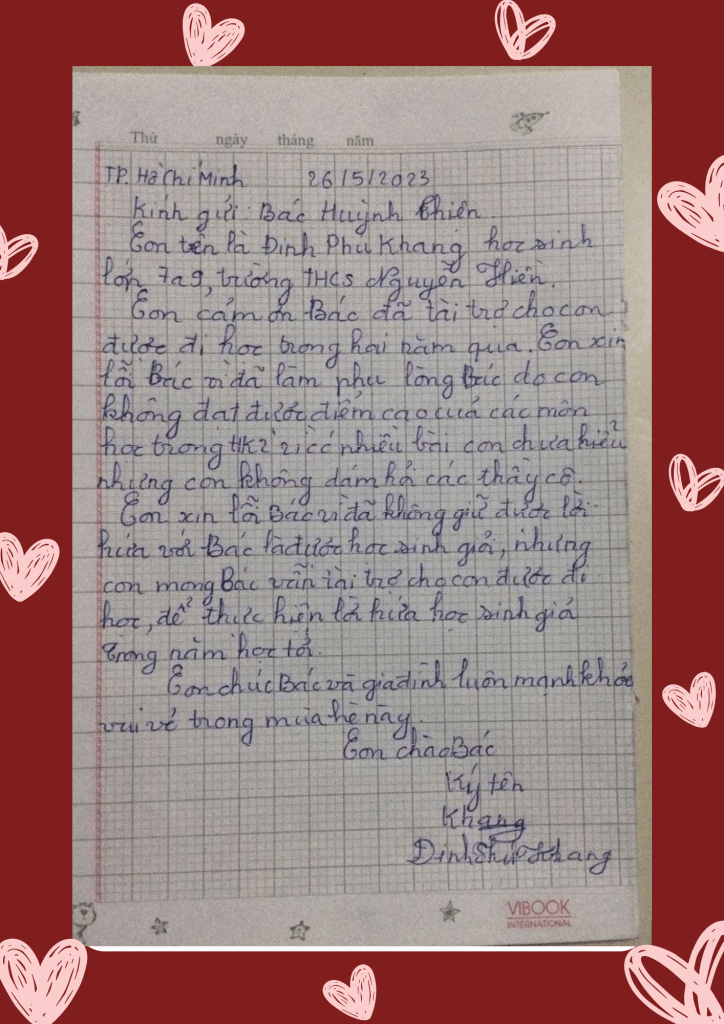 Thứ ngày tháng năm
TP. Hồ Chí Minh 26/5/2023
Kính gửi: Bác Huỳnh Thiên
Con tên là Đinh Phú Khang học sinh
lớp 7a9, trường THCS Nguyễn Hiền.
Con cảm ơn Bác đã tài trợ cho con
được đi học trong hai năm qua. Con xin
lỗi Bác vì đã làm phụ lòng Bác do con
không đạt được điểm cao cuả các môn
học trong HK2 vì có nhiều bài con chưa hiểu
nhưng con không dám hỏi các thầy cô.
Con xin lỗi Bác vì đã không giữ được lời
hứa với Bác là được học sinh giỏi, nhưng
con mong Bác vẫn tài trợ cho con được đi
học, để thực hiện lời hứa học sinh giỏi
trong năm học tới.
Con chúc Bác và gia đình luôn mạnh khỏe
vui vẻ trong mùa hè này.
Con chào Bác
Ký tên
Khang
Đinh Phú Khang
VIBOOK
INTERNATIONAL